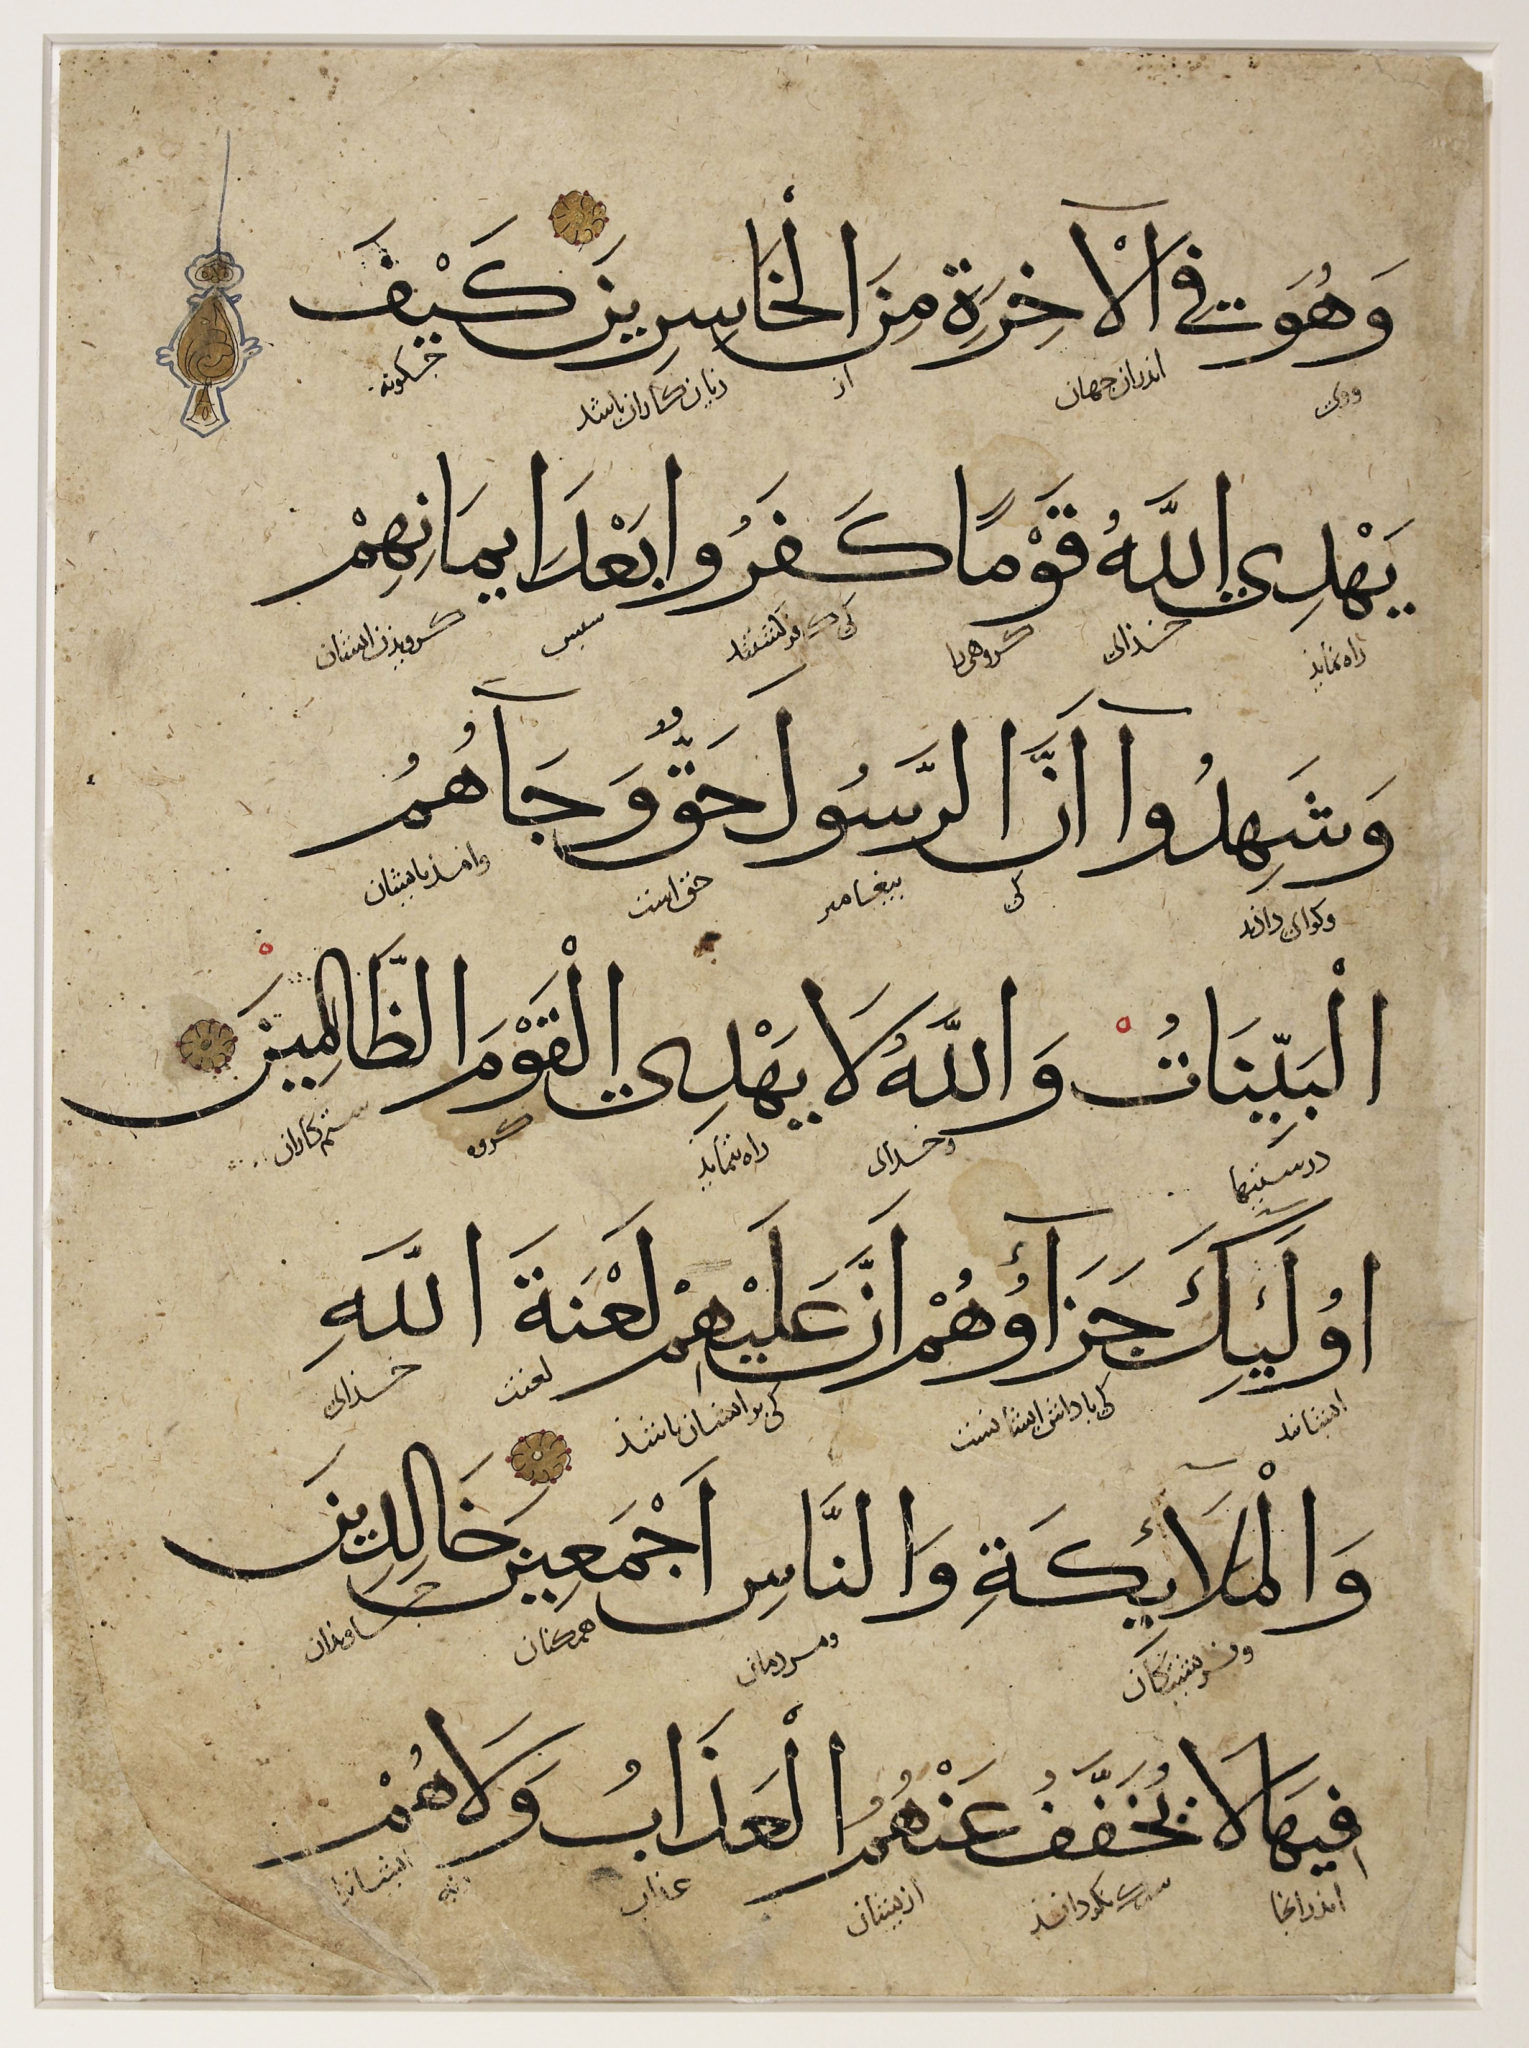 وَهُوَ فِي الْآخِرَةِ مِنَ الْخَاسِرِينَ كَيْفَ
ووى اندران جهان از زیان کاران باشد چکونه
يَهْدِي اللَّهُ قَوْمًا كَفَرُوا بَعْدَ ايمَانِهِمْ
راه نماید خذای کروهی را کی کافر کشتند سپس کرویدن ایشان
وَشَهِدُوآ اَنَّ الرَّسُولَ حَقٌّ وَجَآهُمُ
وکوای دادند کی پیغامبر حق است وامد بایشان
الْبَيِّنَاتُ وَاللَّهُ لَا يَهْدِي الْقَوْمَ الظَّالِمِيْنَ
درستیها وخدای راه ننماید کروه ستم کاران
اوُلَئِكَ جَزَآؤُهُمْ اَنَّ عَلَيْهِمْ لَعْنَةَ اللَّهِ
ایشانند کی باداش ایشانست کی بر ایشان باشد لعنت خذای
وَالْمَلَآئِكَةِ وَالنَّاسِ اَجْمَعِينَ خَالِدِينَ
وفریشتکان ومردمان همکنان جاویذان
فِيهَا لَا يُخَفَّفُ عَنْهُمُ الْعَذَابُ وَلَا هُمْ
اندرانجا سبک نکردانند ازیشان عذاب ونه ایشانرا